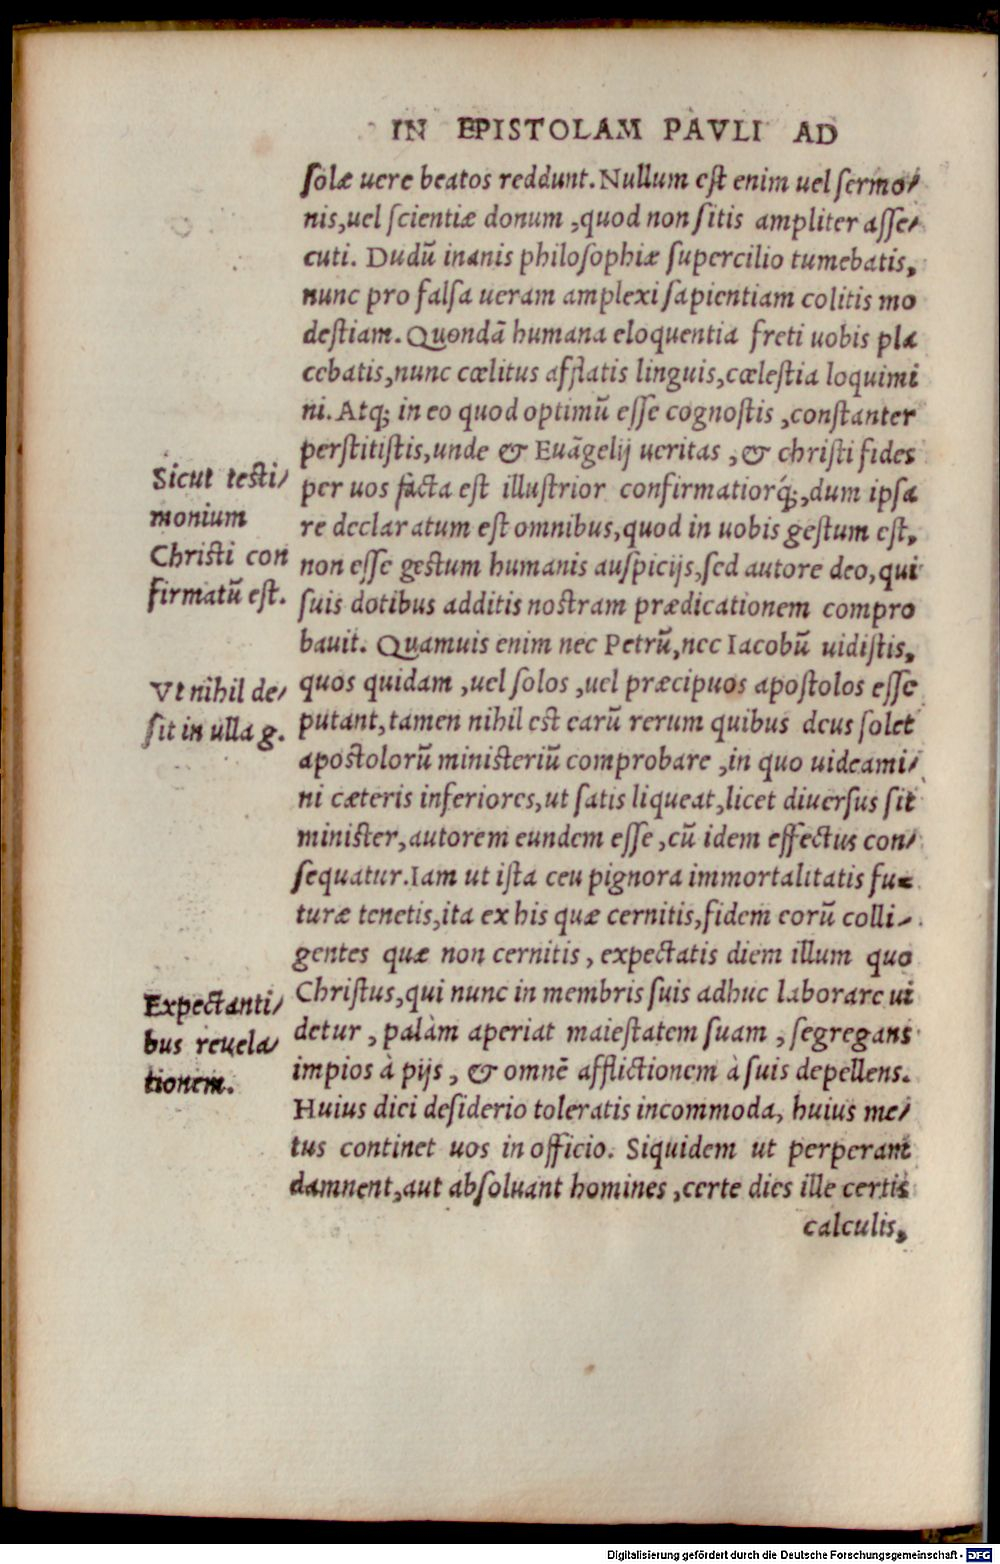 IN EPISTOLAM PAVLI AD
solæ uere beatos reddunt. Nullum est enim uel sermo/
nis, uel scientiæ donum, quod non sitis ampliter asse/
cuti. Dudū inanis philosophiæ supercilio tumebatis,
nunc pro falsa ueram amplexi sapientiam colitis mo
destiam. Quondā humana eloquentia freti uobis pla
cebatis, nunc cœlitus afflatis linguis, cœlestia loquimi
ni. Atq; in eo quod optimū esse cognostis, constanter
perstitistis, unde & Euāgelij ueritas, & christi fides
per uos facta est illustrior confirmatiorq́;, dum ipsa
re declaratum est omnibus, quod in uobis gestum est,
non esse gestum humanis auspicijs, sed autore deo, qui
suis dotibus additis nostram prædicationem compro
bauit. Quamuis enim nec Petrū, nec Iacobū uidistis,
quos quidam, uel solos, uel præcipuos apostolos esse
putant, tamen nihil est earū rerum quibus deus solet
apostolorū ministeriū comprobare, in quo uideami/
ni cæteris inferiores, ut satis liqueat, licet diuersus sit
minister, autorem eundem esse, cū idem effectus con/
sequatur. Iam ut ista ceu pignora immortalitatis fu-
turæ tenetis, ita ex his quæ cernitis, fidem eorū colli-
gentes quæ non cernitis, expectatis diem illum quo
Christus, qui nunc in membris suis adhuc laborare ui
detur, palàm aperiat maiestatem suam, segregans
impios à pijs, & omnē afflictionem à suis depellens.
Huius diei desiderio toleratis incommoda, huius me/
tus continet uos in officio. Siquidem ut perperam
damnent, aut absoluant homines, certe dies ille certis
calculis,
Sicut testi/
monium
Christi con
firmatū est.
Vt nihil de/
sit in ulla g.
Expectanti/
bus reuela/
tionem.
Digitalisierung gefördert durch die Deutsche Forschungsgemeinschaft - DFG